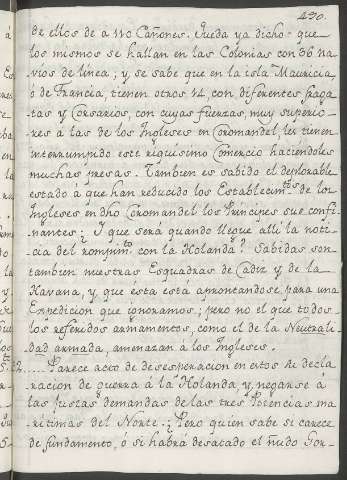 430.
de ellos de a 110 Cañones. Queda ya dicho que
los mismos se hallan en las Colonias con 36 na-
víos de línea; y se sabe que en la isla Mauricia,
ó de Francia, tienen otros 14 con diferentes fraga-
tas y Corsarios, con cuyas fuerzas, muy superio-
res à las de los Ingleses en Coromandel, les tienen
interrumpido este riquísimo Comercio haciendoles
muchas presas. Tambien es sabido el deplorable
estado á que han reducido los Establecim.tos de los
Ingleses en dho Coromandel los Principes sus confi-
nantes; Y que será quando llegue allí la noti-
cia del rompim.to con la Holanda? Sabidas son
tambien nuestras Esquadras de Cadiz y de la
Havana, y que ésta está aprontandose para una
Expedicion que ignoramos; pero no el que todos
los referidos armamentos, como el de la Neutrali-
dad armada, amenazan à los Ingleses.
Parece acto de desesperacion en estos la decla-
racion de guerra á la Holanda y negarse á
las justas demandas de las tres Potencias ma-
ritimas del Norte. ¿Pero quien sabe si carece
de fundamento, ó si habrá desatado el ñudo Gor-